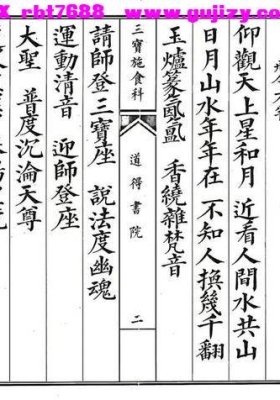 X_rbt7688 www.gujizy.c
仰觀天上星和月 近看人間水共山
日月山水年年在 不知人換幾千翻
玉爐篆氤氳 香繞雜梵音
三寶施食科 道得書院 二
請師登三寶座 說法度幽魂
運動清音 迎師登座
大聖 普度沉淪天尊